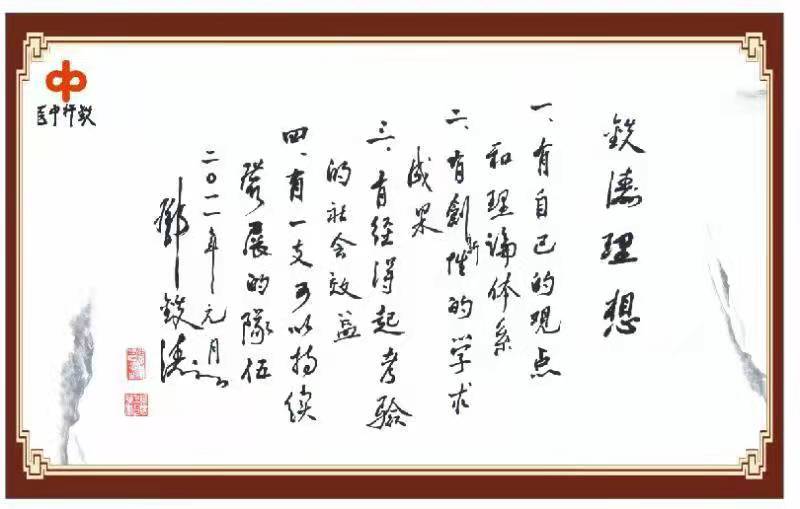 鉄涛理想
一、有自己的观点
和理論体系
二、有創新性的学术
成果
三、有経得起考验
的社会效益
四、有一支可以持续
發展的隊伍
二〇一一年元月
鄧鉄涛
中
鉄杆中医